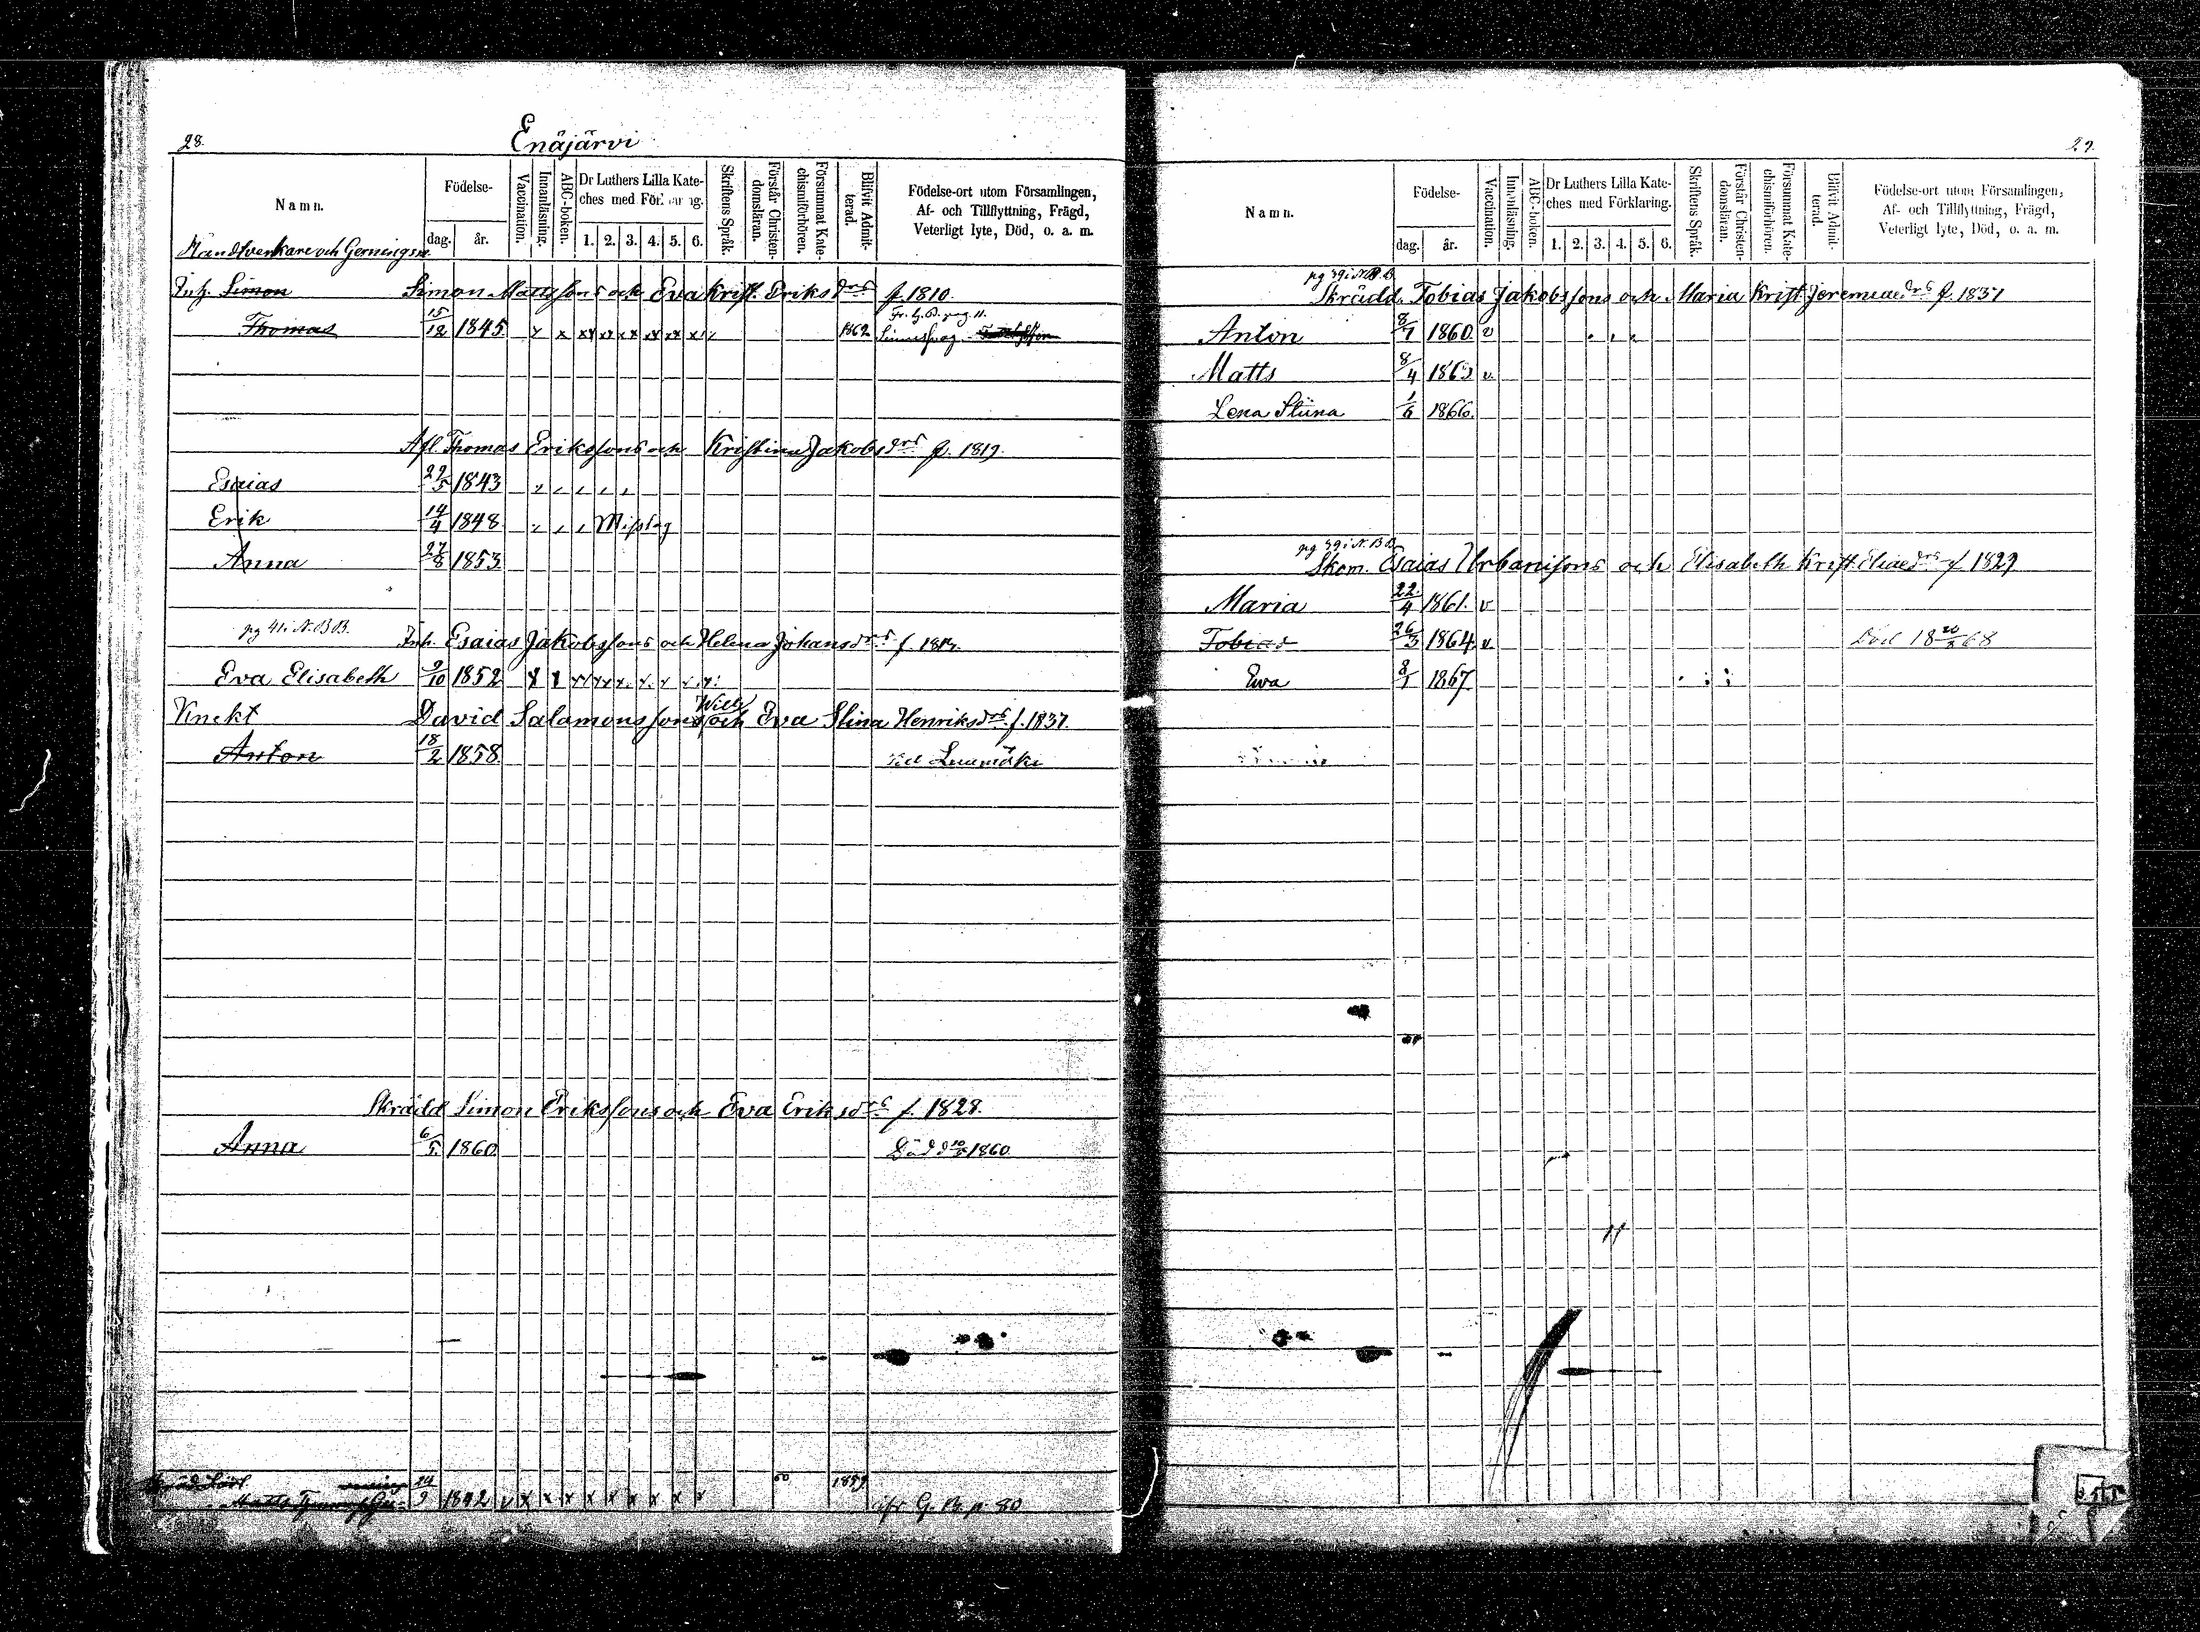 28.
Enäjärvi
Namn.
Födelse-
dag.
år.
Vaccination.
Innanläsning.
ABC-boken.
Dr Luthers Lilla Kate-
ches med För
1. 2. 3. 4. 5. 6.
Skriftens Språk.
Förstår Christen-
domsläran.
Försummat Kate-
chismiförhören.
Blifvit Admit-
terad.
Födelse-ort utom Församlingen,
Af- och Tillflyttning, Frägd,
Veterligt lyte, Död, o. a. m.
Handtverkare och Gerningsm
Inh. Simon Simon Mattssons och Eva Krist. Eriksdrs f. 1810.
Thomas 15/12 1845. x x xx xx xx xx xx x 1862 Fr. H. B. pag. 11.
Afl. Thomas Erikssons och Kristina Jakobsdrs f. 1819.
Esaias 27/5 1843
Erik 14/4 1848 Misstag
Anna 27/8 1853
pg 41 i N. BB.
Inh. Esaias Jakobssons och Helena Johansdrs f.
Eva Elisabeth 9/10 1852 x x xx xx x. x. x x. x.
Knekt David Salomonssons och Eva Stina Henriksdrs f. 1837.
Anton 18/2 1858 Luumäki
Skrädd Simon Erikssons och Eva Eriksdrs f. 1828.
Anna 6/5. 1860 Död d 10/5 1860.
60 1859
Matts 24/9 1842 v x x x x x x x x x G. B. p. 80
29.
Namn.
Födelse-
dag.
år.
Vaccination.
Innanläsning.
ABC-boken.
Dr Luthers Lilla Kate-
ches med Förklaring.
1. 2. 3. 4. 5. 6.
Skriftens Språk.
Förstår Christen-
domsläran.
Försummat Kate-
chismiförhören.
Blifvit Admit-
terad.
Födelse-ort utom Församlingen,
Af- och Tillflyttning, Frägd,
Veterligt lyte, Död, o. a. m.
pg 39 i N. B.B.
Skrädd. Tobias Jakobssons och Maria Krist. Jeremiaedrs f. 1831
Anton 8/7 1860. v
Matts 8/4 1863 v.
Lena Stina 1/6 1866.
pg 39 i N. BB
Skom. Esaias Urbanissons och Elisabeth Krist. Eliaedrs f 1829
Maria 22/4 1861. v
Tobias 26/3 1864. v. Död 18 20/2 68
Eva 8/1 1867